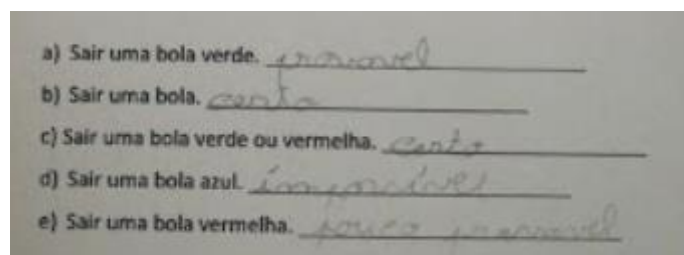 a) Sair uma bola verde. provavel
b) Sair uma bola. certo
c) Sair uma bola verde ou vermelha. certo
d) Sair uma bola azul. impocível
e) Sair uma bola vermelha. pouco provavel